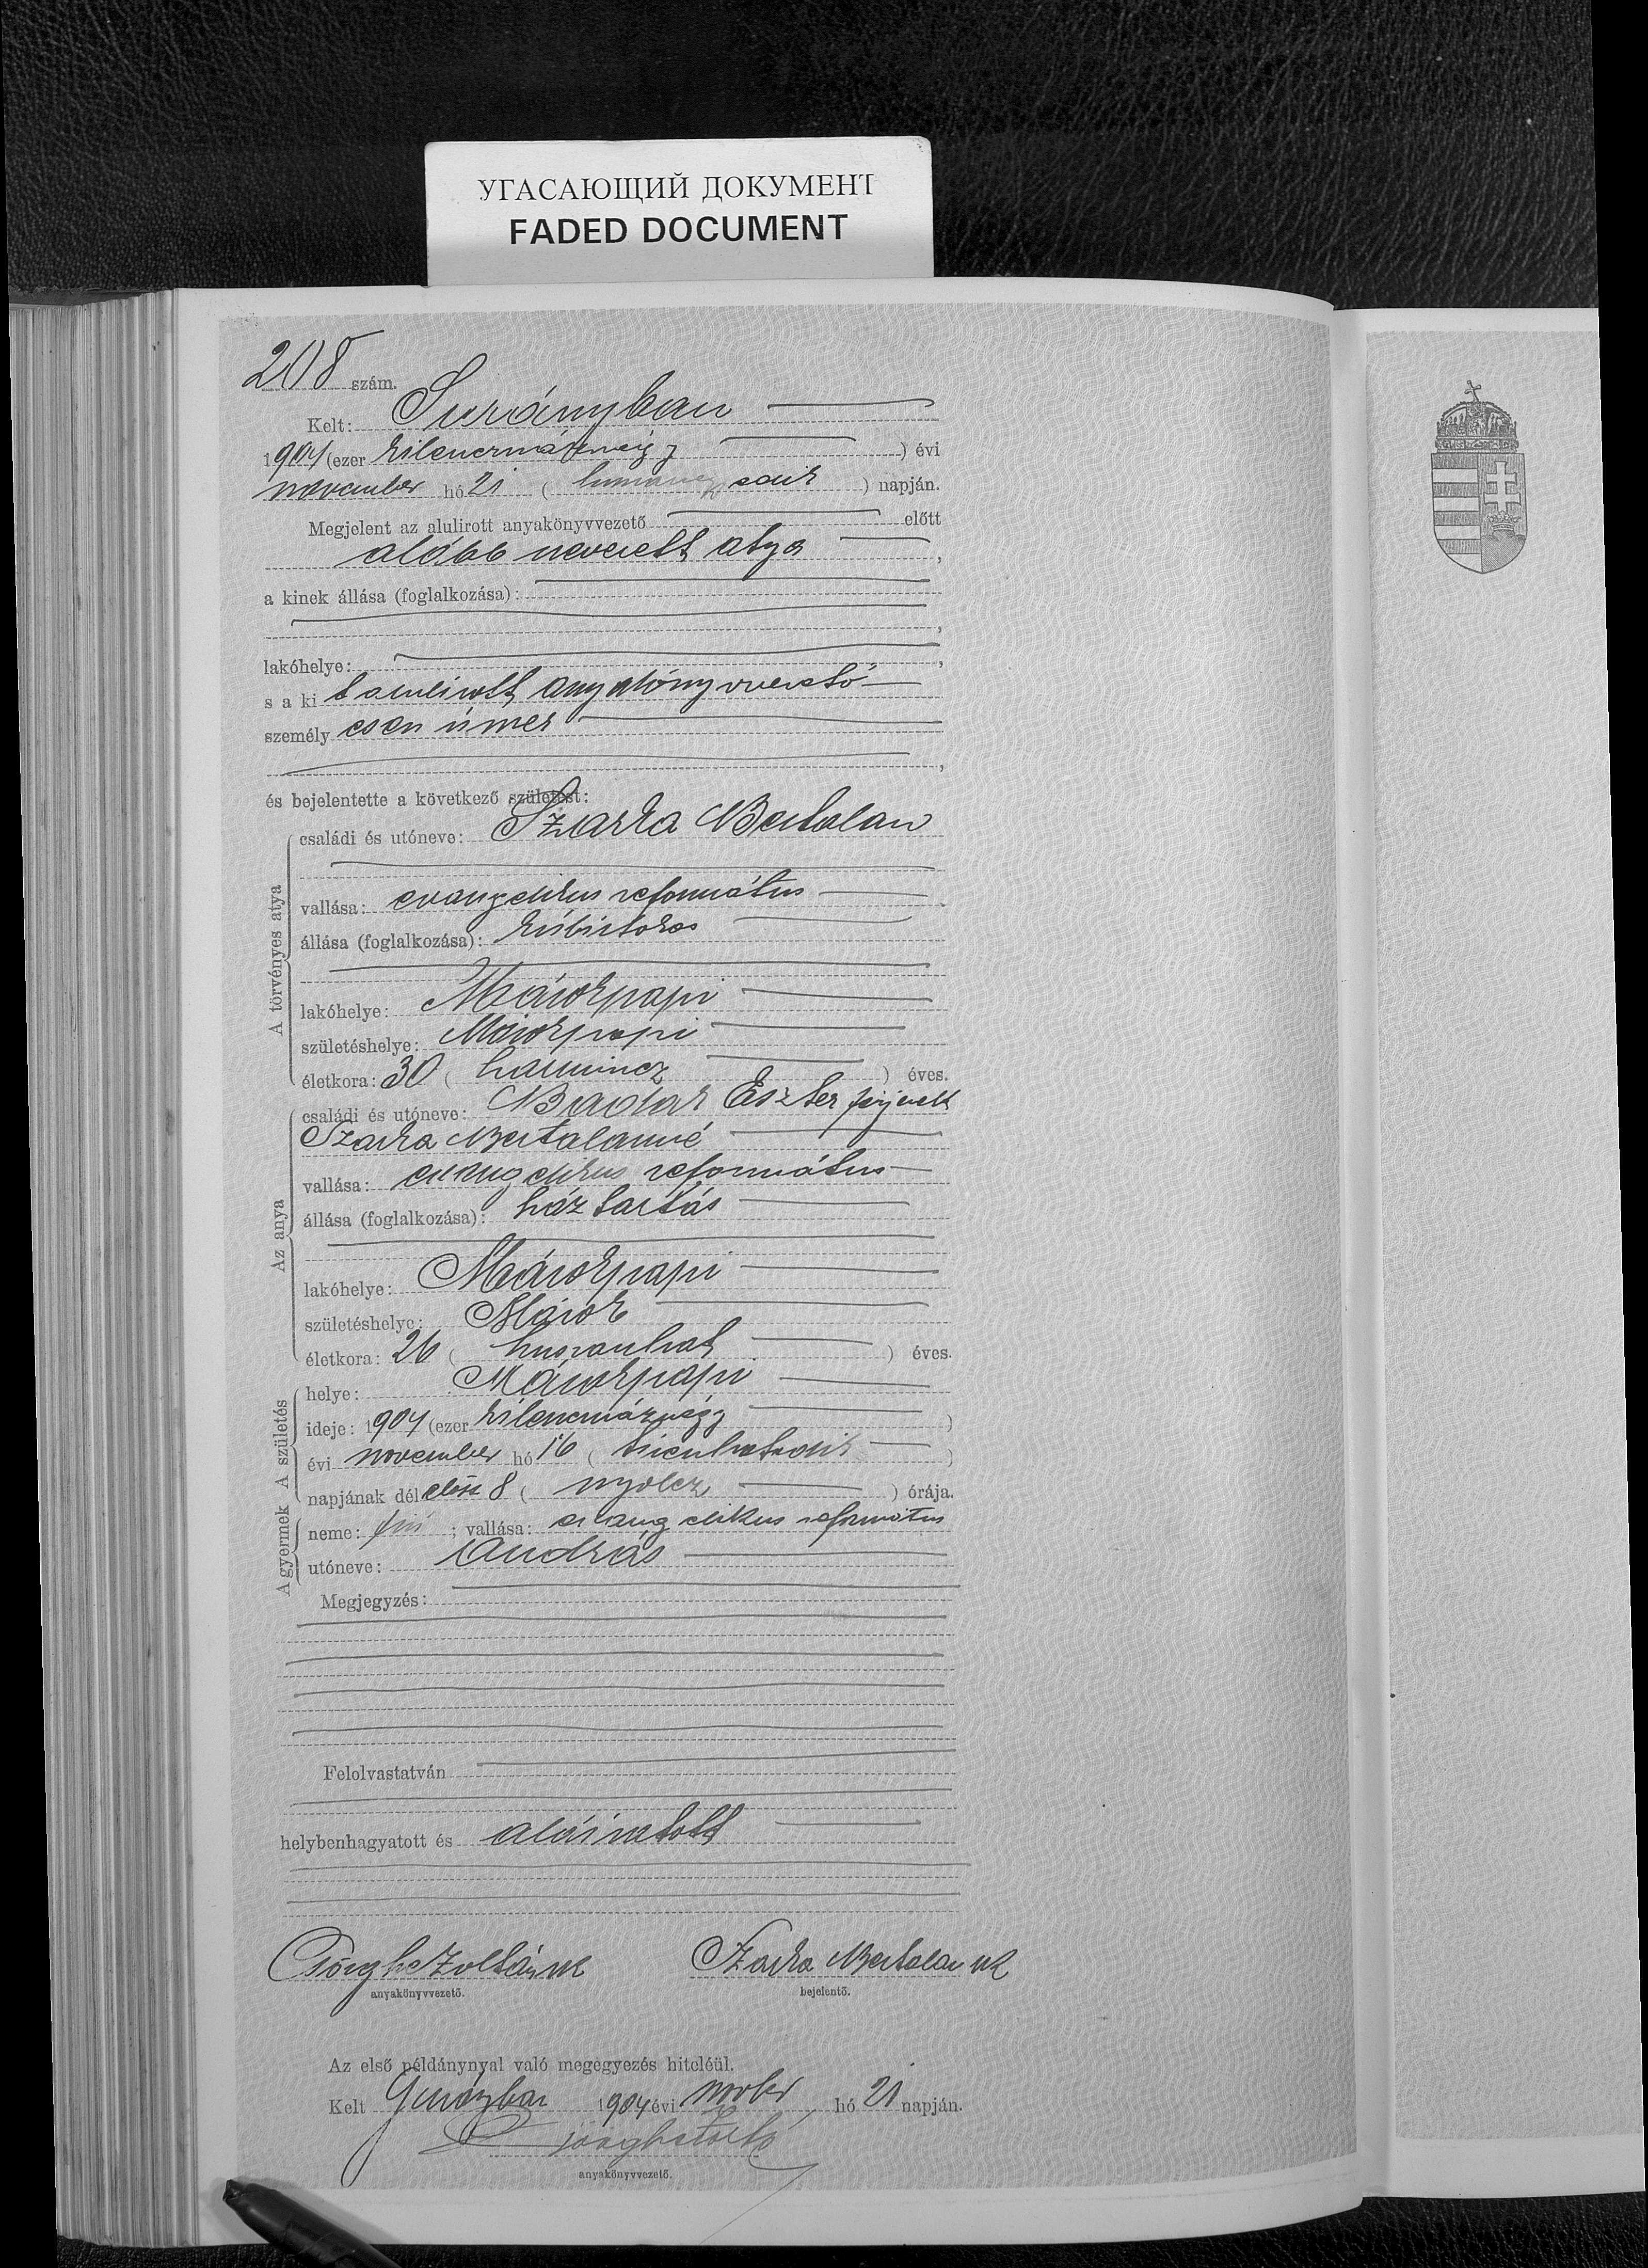 УГАСАЮЩИЙ ДОКУМЕНТ
FADED DOCUMENT
208 szám.
Kelt: Surányban
1904 (ezer kilenczszáznégy) évi
november hó 21 ( huszonegyedik ) napján.
Megjelent az alulirott anyakönyvvezető előtt
alább nevezett atya,
a kinek állása (foglalkozása):
lakóhelye:
s a ki t anyakönyvvezető
személyesen ismer
és bejelentette a következő születést:
A törvényes atya
családi és utóneve: Szarka Bertalan
vallása: evangelikus református
állása (foglalkozása): kisbirtokos
lakóhelye: Márokpapi
születéshelye: Márokpapi
életkora: 30 ( harmincz ) éves.
Az anya
családi és utóneve: Eszter férjezett
Szarka Bertalanné
vallása: evangelikus református
állása (foglalkozása): háztartás
lakóhelye: Márokpapi
születéshelye: Márok
életkora: 26 ( huszonhat ) éves.
A születés
helye: Márokpapi
ideje: 1904 (ezer kilenczszáznégy )
évi november hó 16 ( tizenhatodik )
napjának dél előtt 8 ( nyolcz ) órája.
A gyermek
neme: fiú ; vallása: evangelikus református
utóneve: András
Megjegyzés:
Felolvastatván
helybenhagyatott és aláiratott
Zoltán sk
anyakönyvvezető.
Szarka Bertalan sk
bejelentő.
Az első példánynyal való megegyezés hiteléül.
Kelt 1904 évi novber hó 21 napján.
anyakönyvvezető.